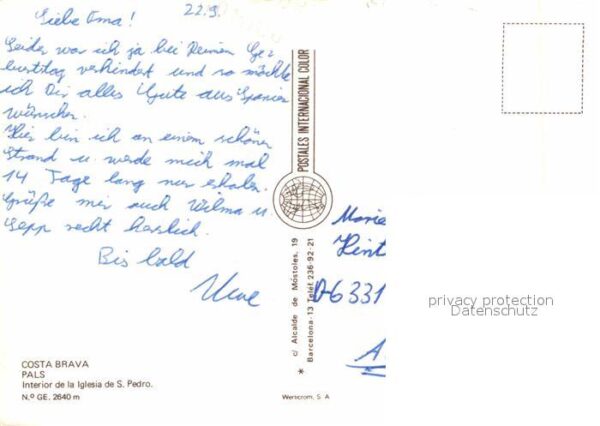 22.9.
Liebe Oma!
Leider war ich ja bei Deinem Ge-
burtstag verhindert und so möchte
ich Dir alles Gute aus Spanien
wünschen.
Hier bin ich an einem schönen
Strand u. werde mich mal
14 Tage lang nur erholen.
Grüße mir auch Wilma u
Sepp recht herzlich.
Bis bald
Uwe
COSTA BRAVA
PALS
Interior de la Iglesia de S. Pedro.
N.º GE. 2640 m
POSTALES INTERNACIONAL COLOR
* c/ Alcalde de Móstoles, 19
Barcelona-13 Telef 236-92-21
Werscrom, S A
Marie
Hint
D6331
privacy protection
Datenschutz